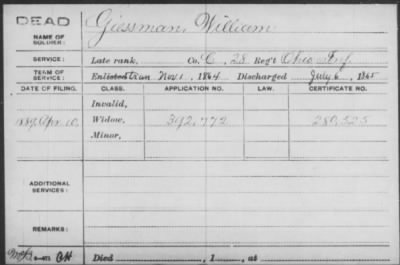 DEAD
NAME OF SOLDIER: Giessman, William
SERVICE: Late rank, Co. C, 28 Reg't Ohio Inf
TERM OF SERVICE: Enlistment Nov. 1, 1864 Discharged July 6, 1865
DATE OF FILING. CLASS. APPLICATION NO. LAW. CERTIFICATE NO.
Invalid,
1889 Apr. 10, Widow, 392,772 280,525
Minor,
ADDITIONAL SERVICES:
REMARKS:
Died , 1 , at